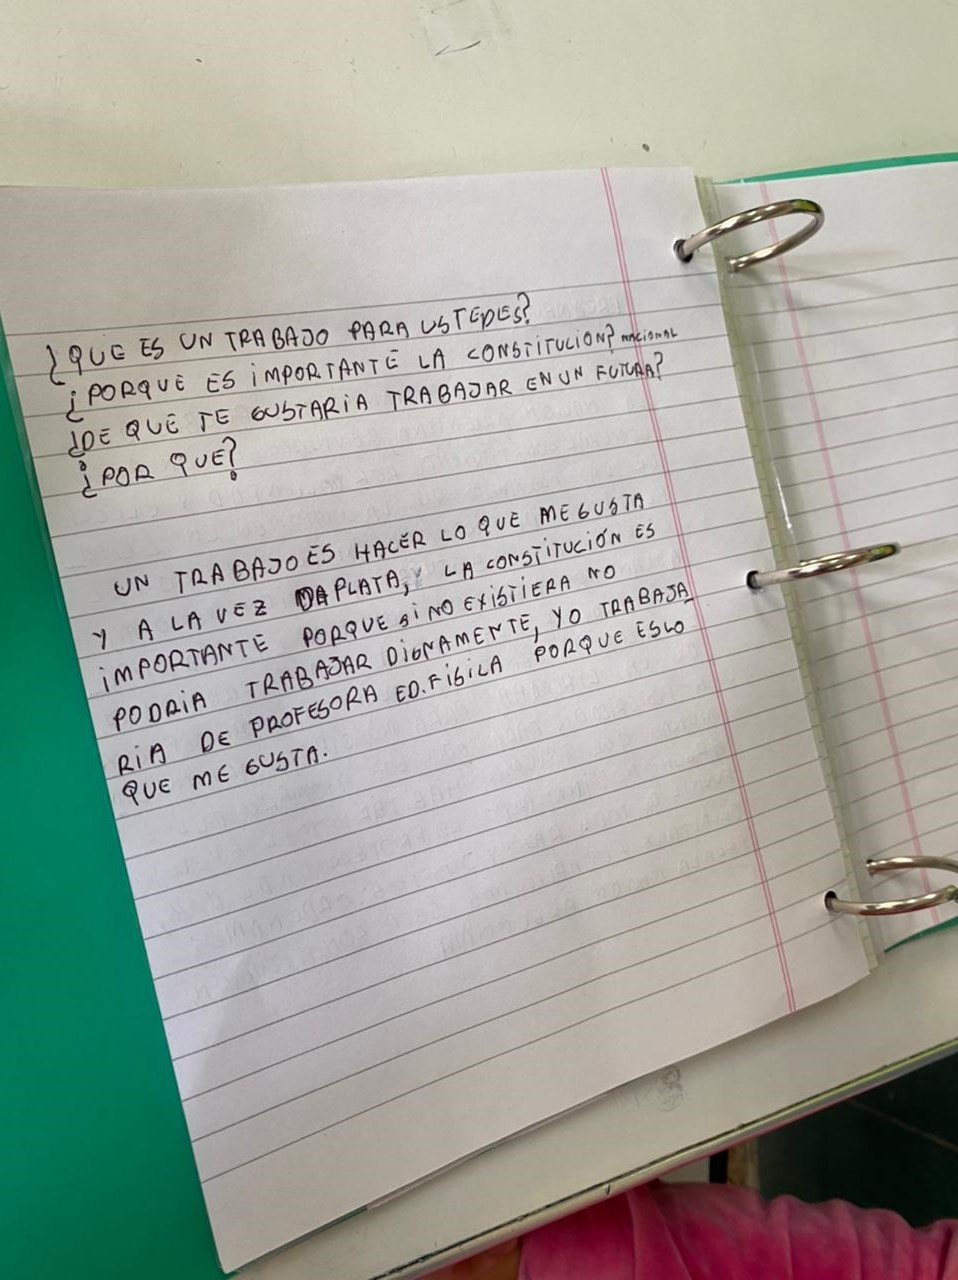 ¿QUE ES UN TRABAJO PARA USTEDES?
¿PORQUE ES IMPORTANTE LA CONSTITUCION? NACIONAL
¿DE QUE TE GUSTARIA TRABAJAR EN UN FUTURA?
¿POR QUE?
UN TRABAJO ES HACER LO QUE ME GUSTA
Y A LA VEZ DA PLATA, Y LA CONSTITUCIÓN ES
IMPORTANTE PORQUE SI NO EXISTIERA NO
PODRIA TRABAJAR DIGNAMENTE, YO TRABAJA_
RIA DE PROFESORA ED.FISILA PORQUE ESLO
QUE ME GUSTA.